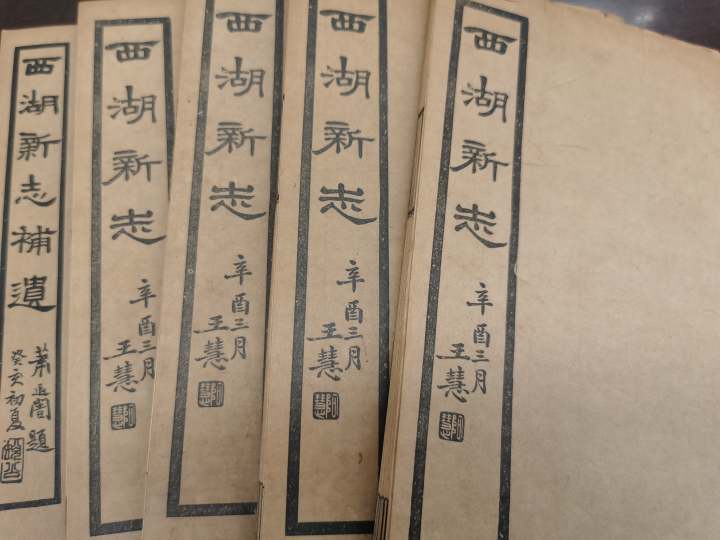 西湖新志
辛酉三月
王慧
西湖新志
辛酉三月
王慧
西湖新志
辛酉三月
王慧
西湖新志
辛酉三月
王慧
西湖新志補遺
蕭退闇題
癸亥初夏